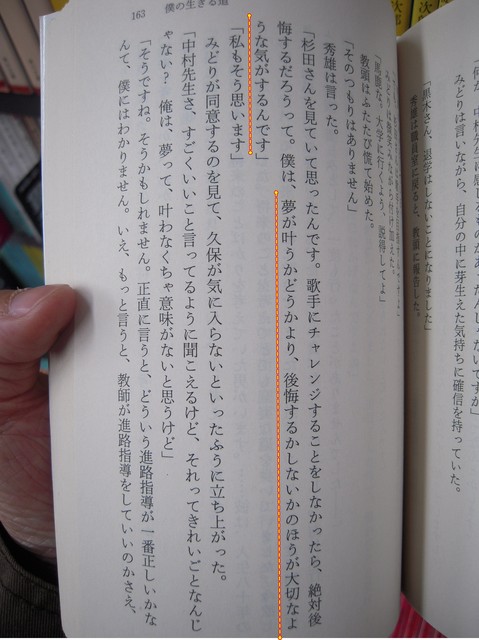 みどりは言いながら、自分の中に芽生えた気持ちに確信を持っていた。
「黒木さん、退学はしないことになりました」
秀雄は職員室に戻ると、教頭に報告した。
教頭はふたたび慌て始めた。
「そのつもりはありません」
秀雄は言った。
「杉田さんを見ていて思ったんです。歌手にチャレンジすることをしなかったら、絶対後
悔するだろうって。僕は、夢が叶うかどうかより、後悔するかしないかのほうが大切なよ
うな気がするんです」
「私もそう思います」
みどりが同意するのを見て、久保が気に入らないといったふうに立ち上がった。
「中村先生さ、すごくいいこと言ってるように聞こえるけど、それってきれいごとなんじ
ゃない? 俺は、夢って、叶わなくちゃ意味がないと思うけど」
「そうですね。そうかもしれません。正直に言うと、どういう進路指導が一番正しいかな
んて、僕にはわかりません。いえ、もっと言うと、教師が進路指導をしていいのかさえ、
163 僕の生きる道